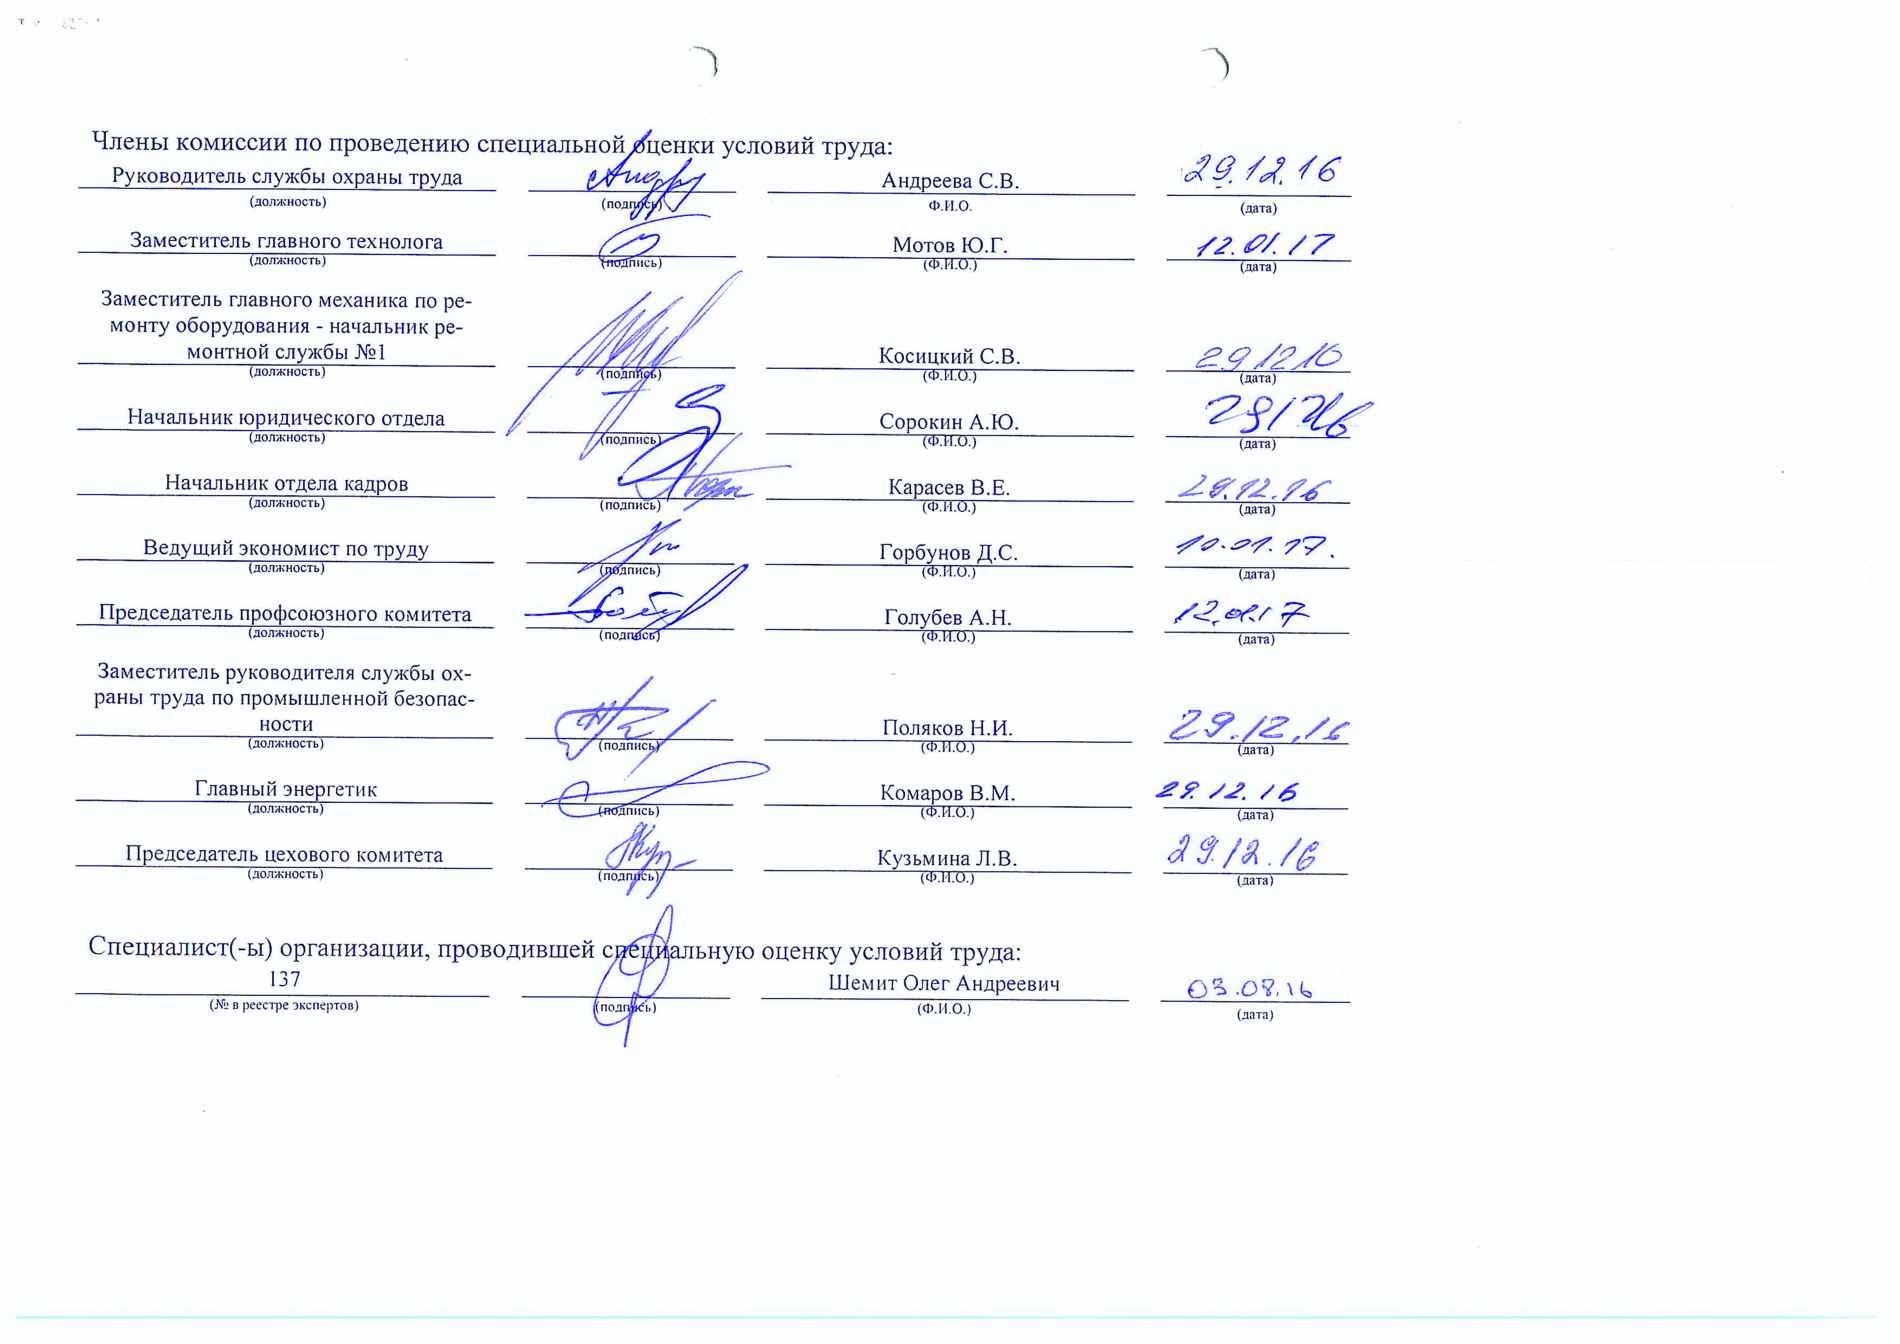 Члены комиссии по проведению специальной оценки условий труда:
Руководитель службы охраны труда Андреева С.В. 29.12.16
(должность) (подпись) Ф.И.О. (дата)
Заместитель главного технолога Мотов Ю.Г. 12.01.17
(должность) (подпись) (Ф.И.О.) (дата)
Заместитель главного механика по ре-
монту оборудования - начальник ре-
монтной службы №1 Косицкий С.В.
(должность) (подпись) (Ф.И.О.) (дата)
Начальник юридического отдела Сорокин А.Ю.
(должность) (подпись) (Ф.И.О.) (дата)
Начальник отдела кадров Карасев В.Е. 29.12.16
(должность) (подпись) (Ф.И.О.) (дата)
Ведущий экономист по труду Горбунов Д.С. 10.01.17.
(должность) (подпись) (Ф.И.О.) (дата)
Председатель профсоюзного комитета Голубев А.Н. 12.01.17
(должность) (подпись) (Ф.И.О.) (дата)
Заместитель руководителя службы ох-
раны труда по промышленной безопас-
ности Поляков Н.И. 29.12.16
(должность) (подпись) (Ф.И.О.) (дата)
Главный энергетик Комаров В.М. 29.12.16
(должность) (подпись) (Ф.И.О.) (дата)
Председатель цехового комитета Кузьмина Л.В. 29.12.16
(должность) (подпись) (Ф.И.О.) (дата)
Специалист(-ы) организации, проводившей специальную оценку условий труда:
137 Шемит Олег Андреевич 03.08.16
(№ в реестре экспертов) (подпись) (Ф.И.О.) (дата)